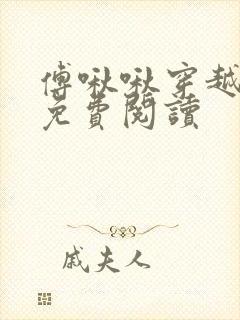 傅啾啾穿越
免費閱讀
戚夫人